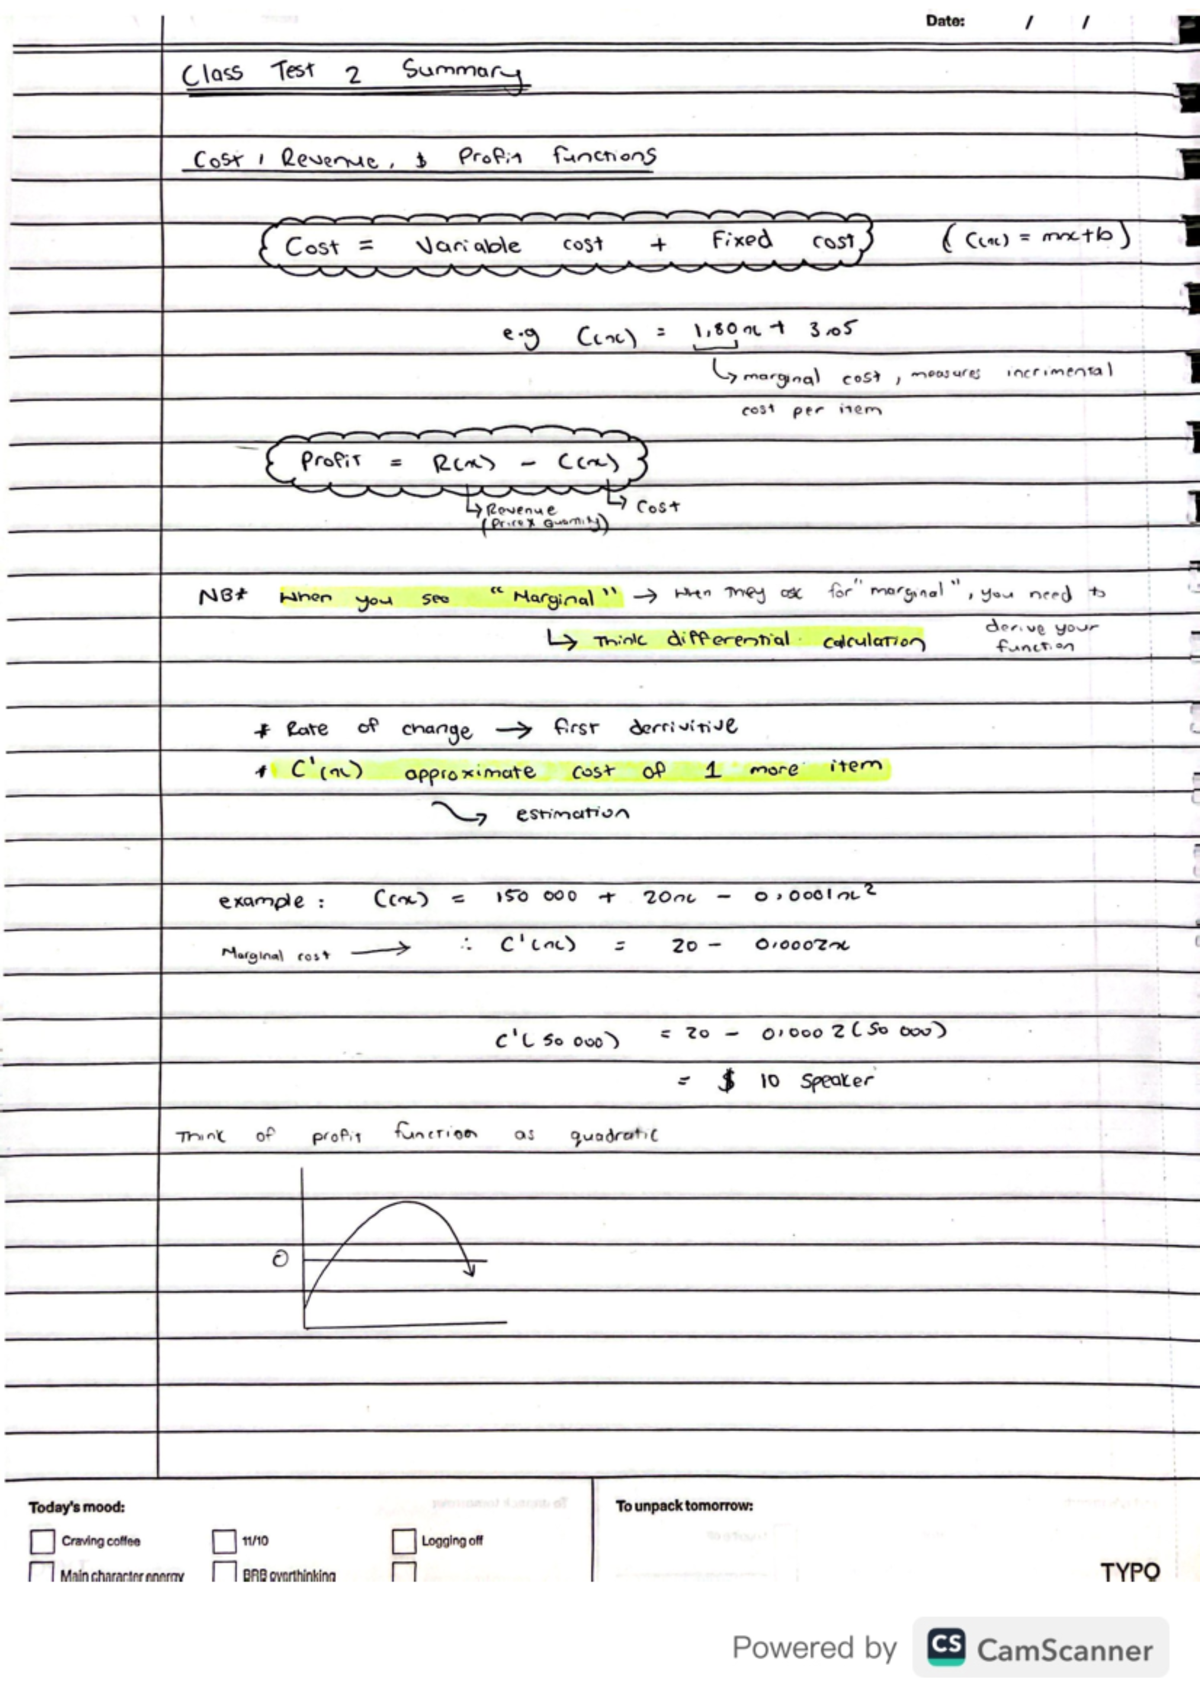 Date: / /
Class Test 2 Summary
Cost, Revenue, & Profit functions
Cost = Variable cost + Fixed cost (C(x) = mx+b)
e.g C(x) = 1,80x + 3,05
↳ marginal cost, measures incrimental
cost per item
Profit = R(x) - C(x)
↳ Revenue ↳ Cost
(Price x Quantity)
NB* When you see "Marginal" → When they ask for "marginal", you need to
derive your
↳ Think differential calculation function
* Rate of change → first derrivitive
* C'(x) approximate cost of 1 more item
estimation
example: C(x) = 150 000 + 20x - 0,0001x²
Marginal cost → ∴ C'(x) = 20 - 0,0002x
C'(50 000) = 20 - 0,0002(50 000)
= $ 10 Speaker
Think of profit function as quadratic
0
Today's mood: To unpack tomorrow:
Craving coffee 11/10 Logging off
Main character energy BRB overthinking
TYPO
Powered by CS CamScanner